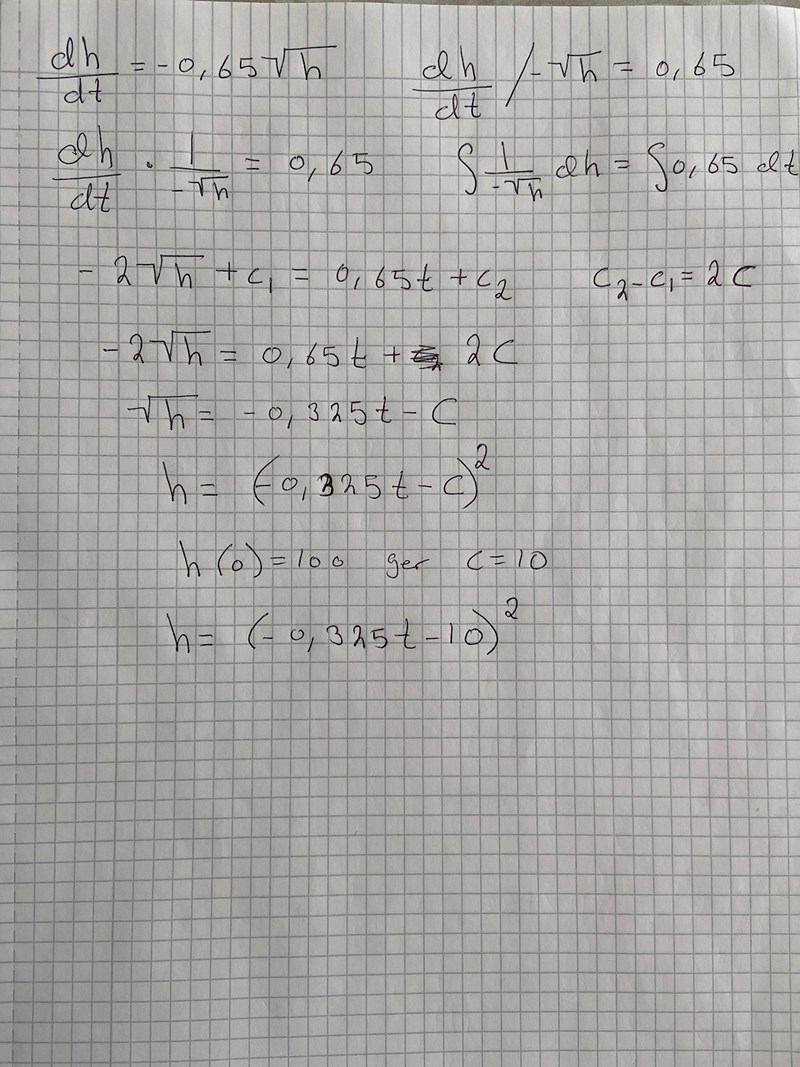 dh/dt = -0,65√h    dh/dt / -√h = 0,65
dh/dt · 1/-√h = 0,65    ∫ 1/-√h dh = ∫0,65 dt
-2√h + c₁ = 0,65t + c₂    c₂ - c₁ = 2C
-2√h = 0,65t + 2C
√h = -0,325t - C
h = (-0,325t - C)²
h(0) = 100 ger C = 10
h = (-0,325t - 10)²